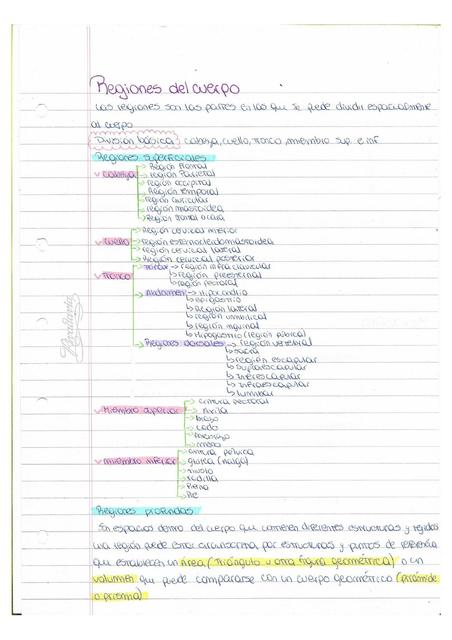 Regiones del cuerpo
Las regiones son las partes en las que se puede dividir espacialmente
al cuerpo
División básica: cabeza, cuello, tronco, miembro sup. e inf
Regiones superficiales
Cabeza → Región frontal
→ región parietal
→ región occipital
→ Región temporal
→ región auricular
→ región mastoidea
→ Región
Cuello → Región cervical anterior
→ región esternocleidomastoidea
→ región cervical lateral
→ Región cervical posterior
Tronco → Tórax → región infraclavicular
→ región preesternal
→ región pectoral
→ Abdomen → Hipocondrio
→ epigastrio
→ Región lateral
→ región umbilical
→ región inguinal
→ Hipogastrio (región púbica)
→ Regiones dorsales → región vertebral
→ sacra
→ región escapular
→ supraescapular
→ Interescapular
→ Infraescapular
→ lumbar
Miembro superior → cintura pectoral
→ Axila
→ brazo
→ codo
→ mano
miembro inferior → cintura pélvica
→ glútea (nalga)
→ muslo
→ rodilla
→ Pierna
→ Pie
Regiones profundas
Son espacios dentro del cuerpo que contienen diferentes estructuras y tejidos
una región puede estar por estructuras y puntos de referencia
que establecen un área (triángulo u otra figura geométrica) o un
volumen que puede compararse con un cuerpo geométrico (pirámide
o prisma)